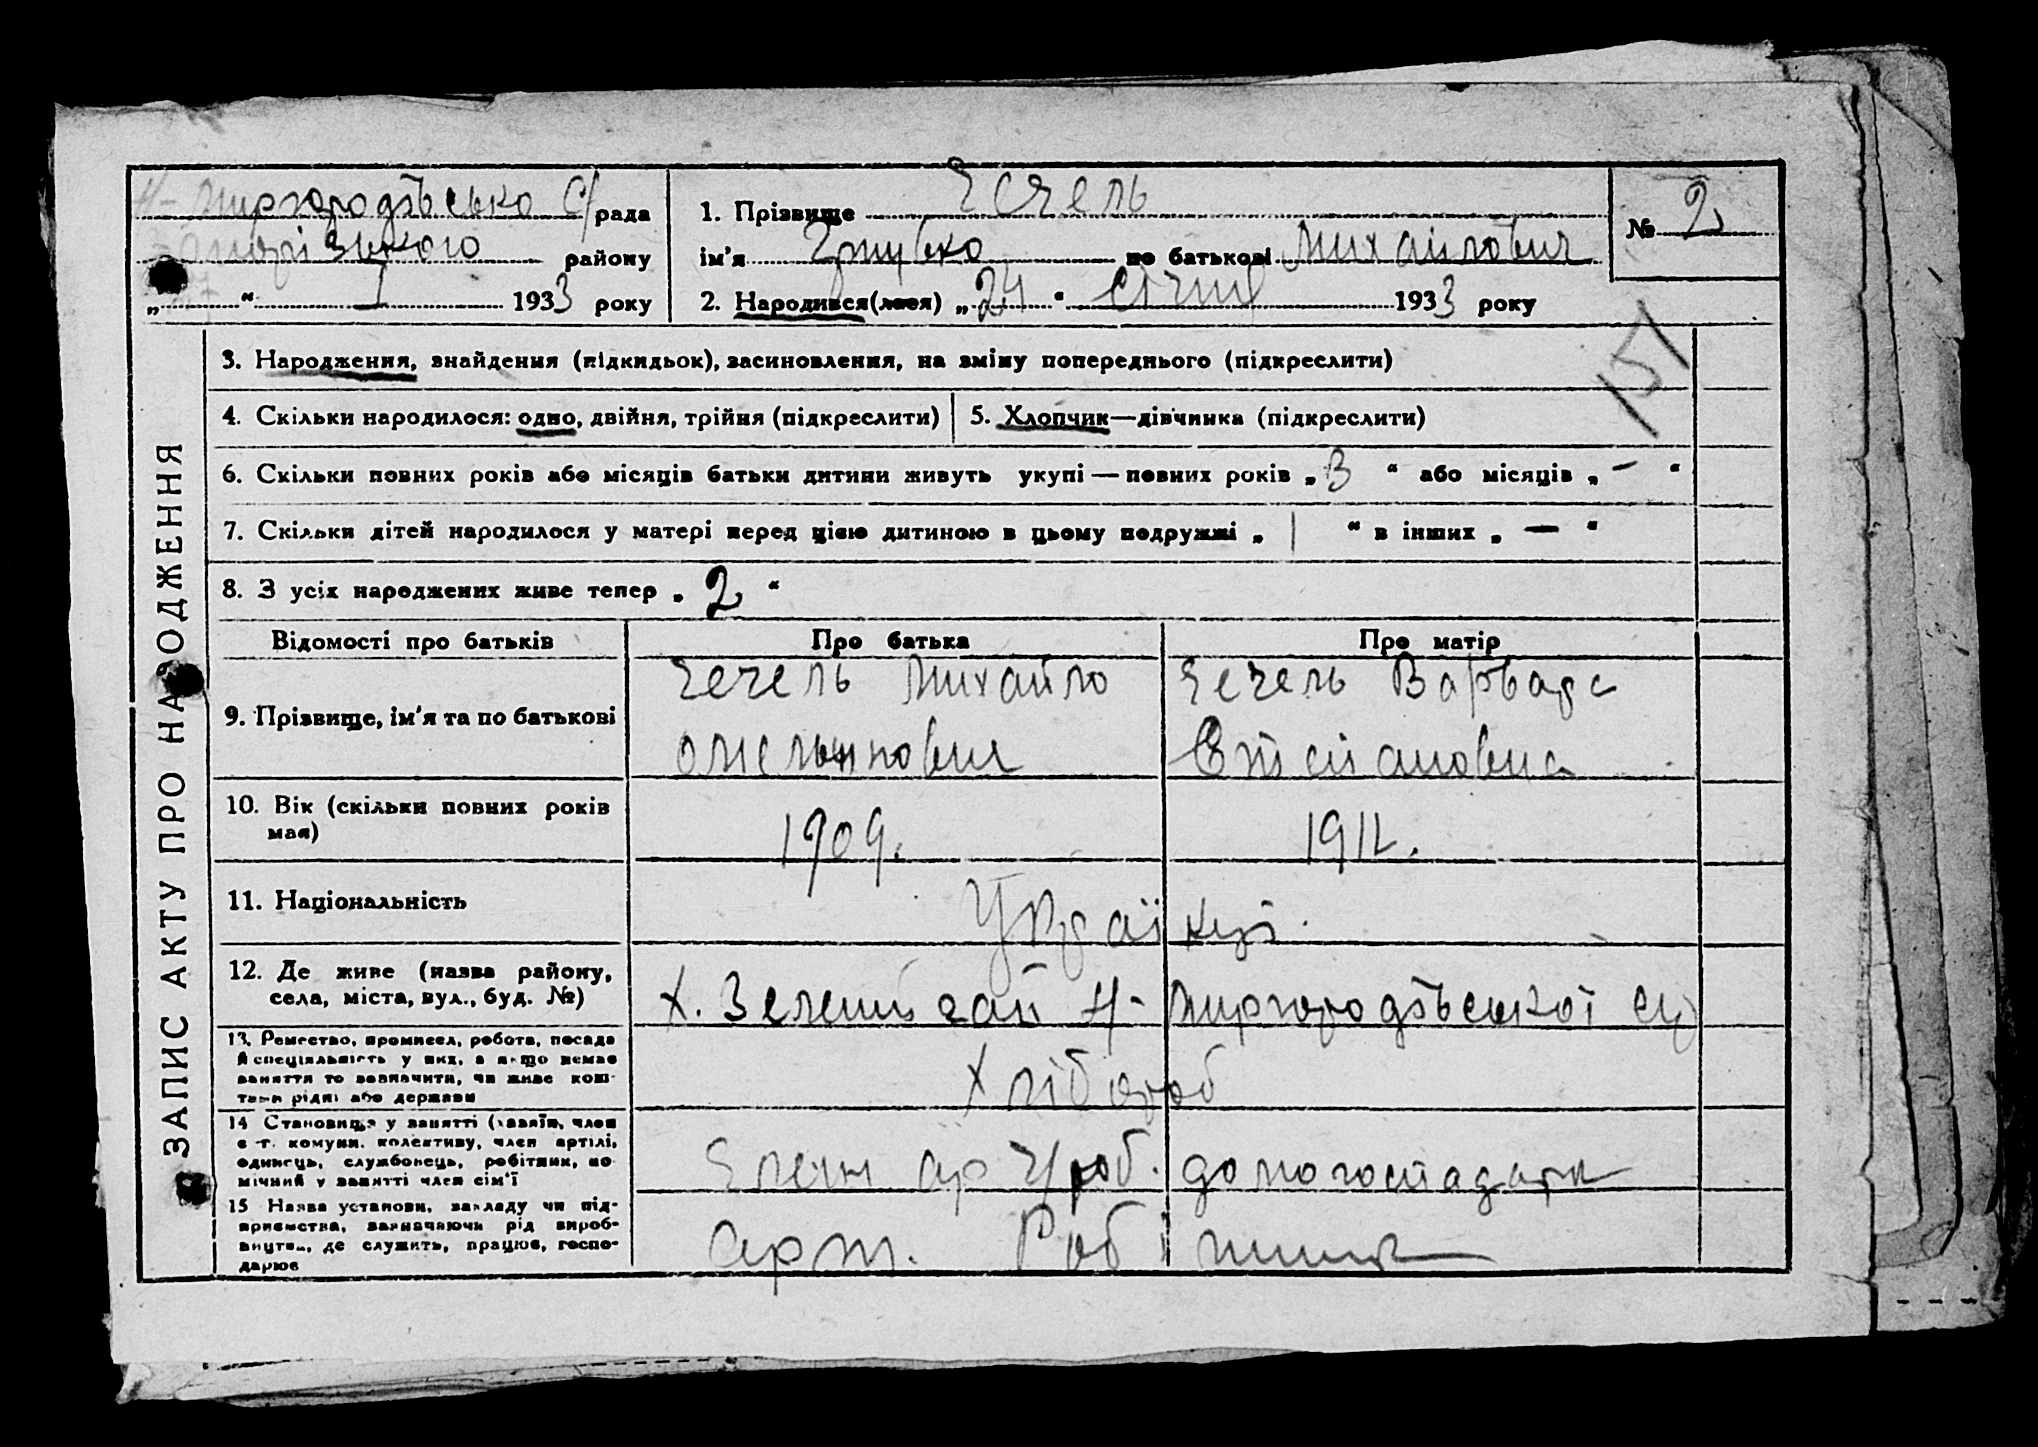 Н-Миргородівська С/рада
району
" " I 1933 року
1. Прізвище Чечель
ім'я по батькові Михайлович
2. Народився(лася) „24" січня 1933 року
№ 2
151
3. Народження, знайдення (підкидьок), засиновлення, на зміну попереднього (підкреслити)
4. Скільки народилося: одно, двійня, трійня (підкреслити)
5. Хлопчик—дівчинка (підкреслити)
6. Скільки повних років або місяців батьки дитини живуть укупі — повних років „3" або місяців „—"
7. Скільки дітей народилося у матері перед цією дитиною в цьому подружжі „1" в інших „—"
8. З усіх народжених живе тепер „2"
ЗАПИС АКТУ ПРО НАРОДЖЕННЯ
Відомості про батьків
Про батька
Про матір
9. Прізвище, ім'я та по батькові
Чечель Михайло
Омельянович
Чечель Варвара
Степановна
10. Вік (скільки повних років
має)
1909.
1912.
11. Національність
Українці.
12. Де живе (назва району,
села, міста, вул., буд. №)
х. Зелений гай Н-Миргородівської с/р
13. Ремество, промисел, робота, посада
й спеціяльність у них, а якщо немає
заняття то зазначити, чи живе кош-
тами рідні або держави
Хлібороб
14 Становище у занятті (хазяїн, член
с.-г. комуни, колективу, член артілі,
одинець, службовець, робітник, по-
мічний у занятті член сім'ї
Член арт/роб. домогосподарка
15 Назва установи, закладу чи під-
приємства, зазначаючи рід вироб-
ництва, де служить, працює, госпо-
дарює
арт. Робітник